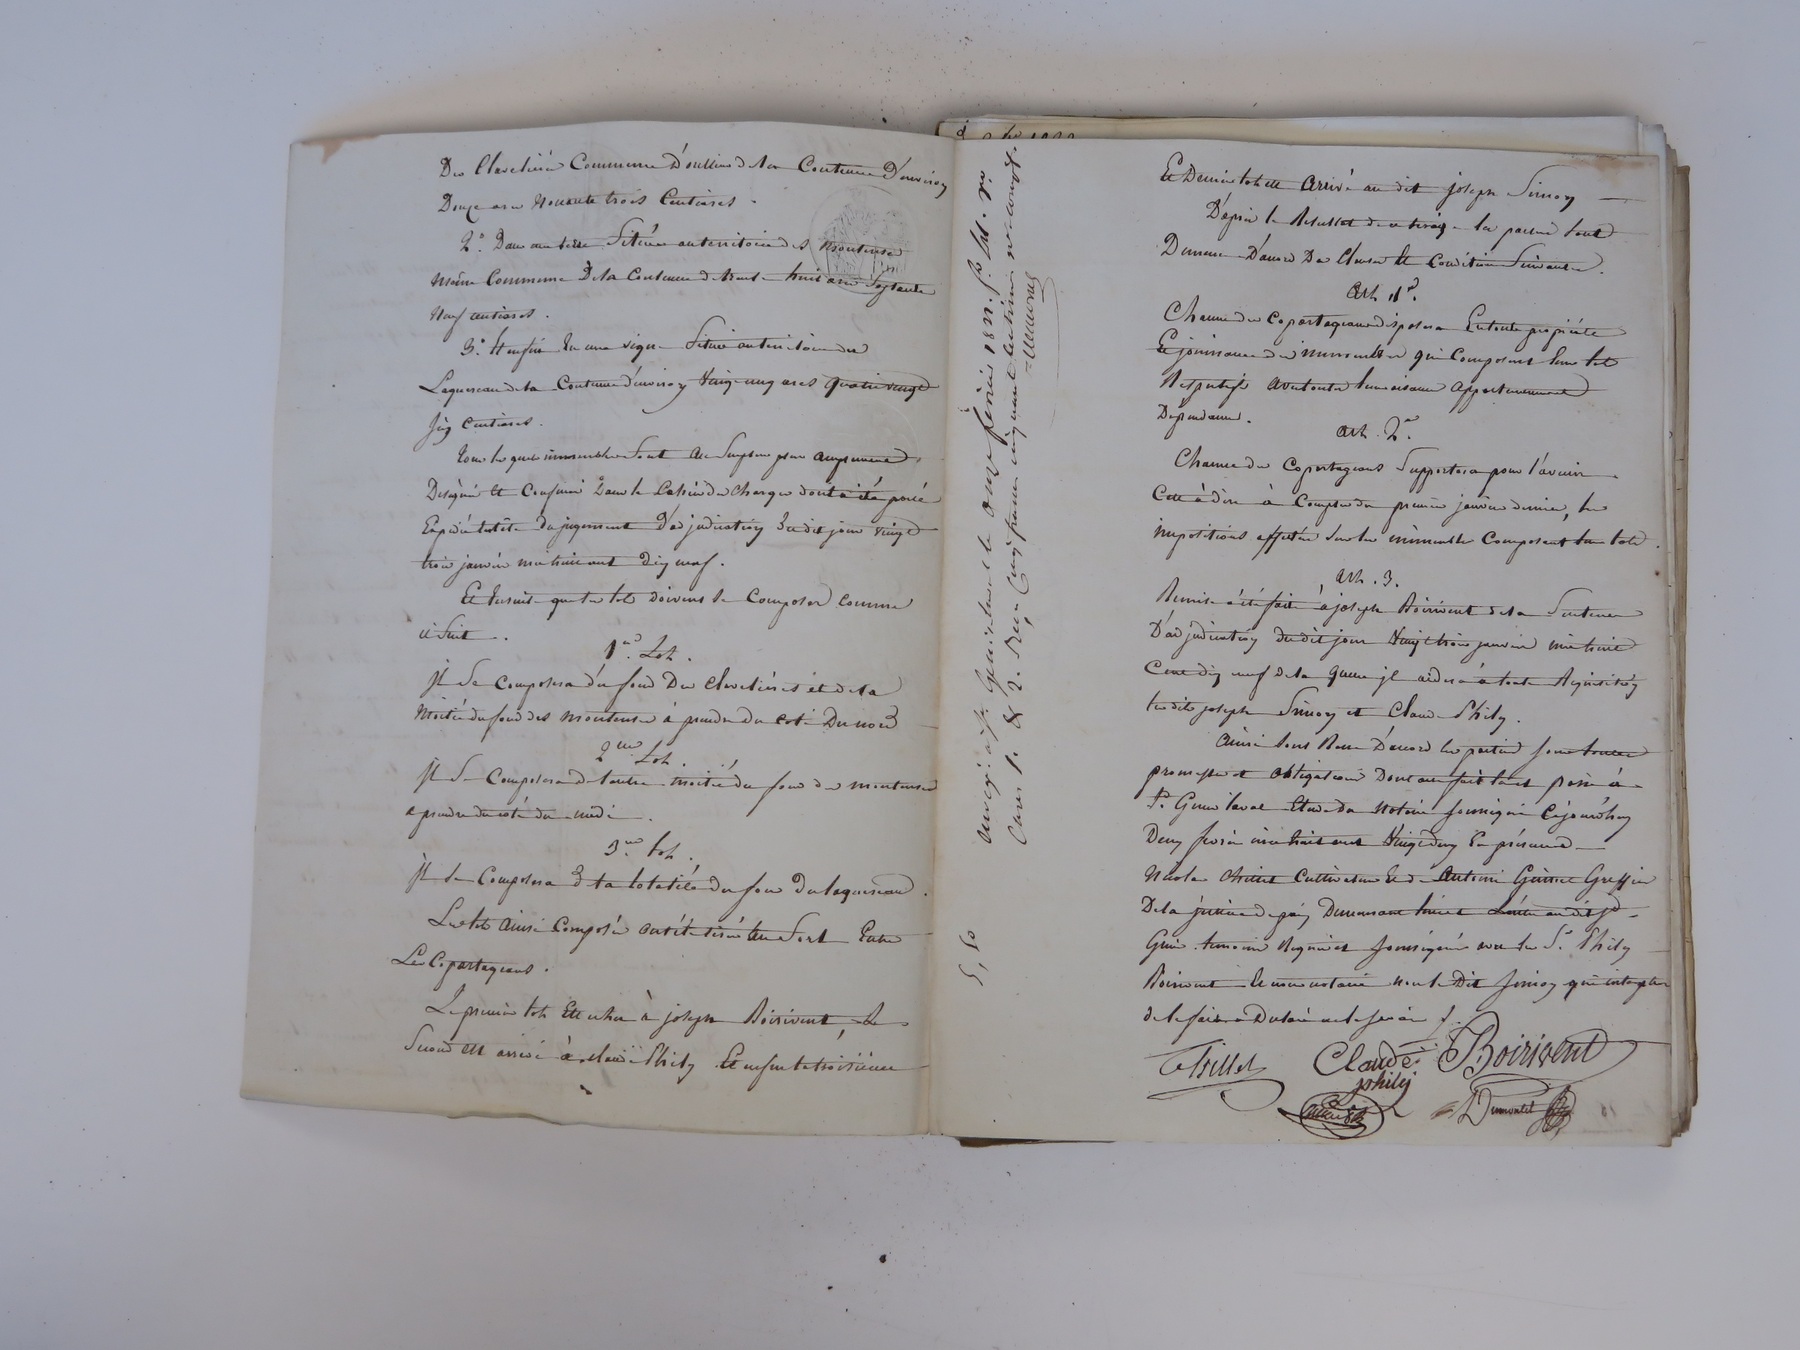 Des Clavelières Commune d'oullins de la Contenue D'environ
Douze ares Nonante trois Centiares.
2.° Dans une terre Située au territoire des montenes
même Commune De la Contenue de trente huit ares Septante
Neuf centiares.
3.° Et enfin En une vigne Située au territoire du
Laquereau de la Contenue d'environ Vingt cinq ares quatre vingt
Six centiares.
Tous lesquels immeubles Sont au Surplus plus amplement
Désignés et Confinés Dans le Cahier des charges dont a été parlé
En tête du jugement D'adjudication du dit jour vingt
trois janvier mil huit cent dix neuf.
Et Ensuite que les lots doivent Se Composer Comme
il Suit.
1.er Lot.
Il Se Composera du fond Des Clavelières et de la
Moitié du fond des montenes à prendre du coté Du nord
2.me Lot.
Il Se Composera de l'autre moitié du fond des montenes
a prendre du coté du midi.
3.me lot.
Il Se Composera de la totalité du fond du laquereau.
Les lots ainsi Composés ont été tirés au Sort Entre
Les Copartageans.
Le premier lot Est échu à joseph Boirivent, Le
Second est arrivé à claude Phily Et enfin le troisième
Et Dernier lot est arrivé au dit joseph Simon
D'après le Resultat de ce tirage les parties Sont
Demeurées D'accord Des Clauses Et Conditions Suivantes.
Art. 1.er
Chacun des Copartageans disposera En toute propriété
Et jouissance des immeubles qui Composent Son lot
Respectif avec toutes leurs aisances appartenances
Dépendances.
Art. 2.e
Chacun des Copartageans Supportera pour l'avenir
C'est à dire à Compter du premier janvier dernier, les
impositions affectées Sur les immeubles Composant Son lot.
Art. 3.
Remise a été faite à joseph Boirivent de la Sentence
D'adjudication du dit jour Vingt trois janvier mil huit
Cent dix neuf de la quelle il aidera à toute Réquisition
les dits joseph Simon et Claude Phily.
Ainsi Sont Demeurées D'accord les parties sous toutes
promesses et obligations Dont acte fait lu et passé à
S.t Genis laval Etude du Notaire soussigné Cejourd'hui
Deux fevrier mil huit cent Vingt deux En présence
Nicolas Cultivateur Et de Antoine Greffier
De la justice de paix Demeurant tous deux au dit S.t
Genis temoins Requis et soussignés avec les S.rs Phily
Boirivent et nous notaire non le Dit Simon qui interpellé
de le faire a Déclaré ne le savoir
Claude phily
JBoirivent
Enregistré à St. Genis Laval le onze février 1822. f.°
Cases 1. & 2. Reçu Cinq francs cinquante centimes
5,50